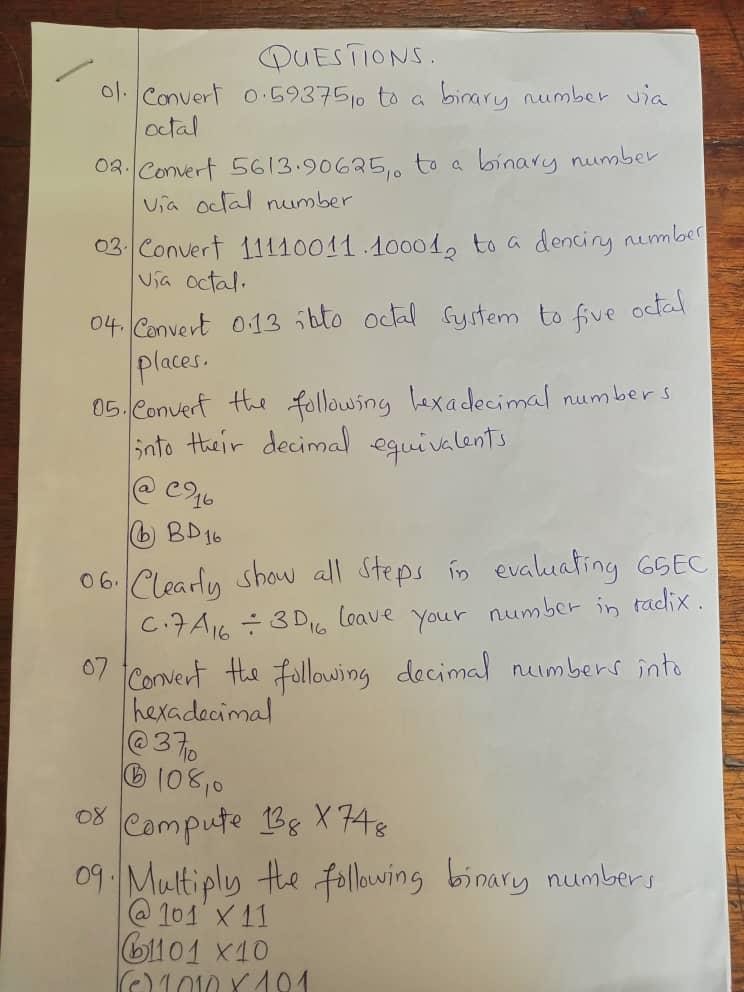 QUESTIONS.
01. Convert 0.59375₁₀ to a binary number via
octal
02. Convert 5613.90625₁₀ to a binary number
via octal number
03. Convert 11110011.10001₂ to a denciry number
via octal.
04. Convert 0.13 into octal system to five octal
places.
05. Convert the following hexadecimal numbers
into their decimal equivalents
(a) C9₁₆
(b) BD₁₆
06. Clearly show all steps in evaluating 65EC
C.7A₁₆ ÷ 3D₁₆ leave your number in radix.
07 Convert the following decimal numbers into
hexadecimal
(a) 37₁₀
(b) 108₁₀
08 Compute 13₈ X 74₈
09. Multiply the following binary numbers
(a) 101 X 11
(b) 1101 X 10
(c) 1010 X 101